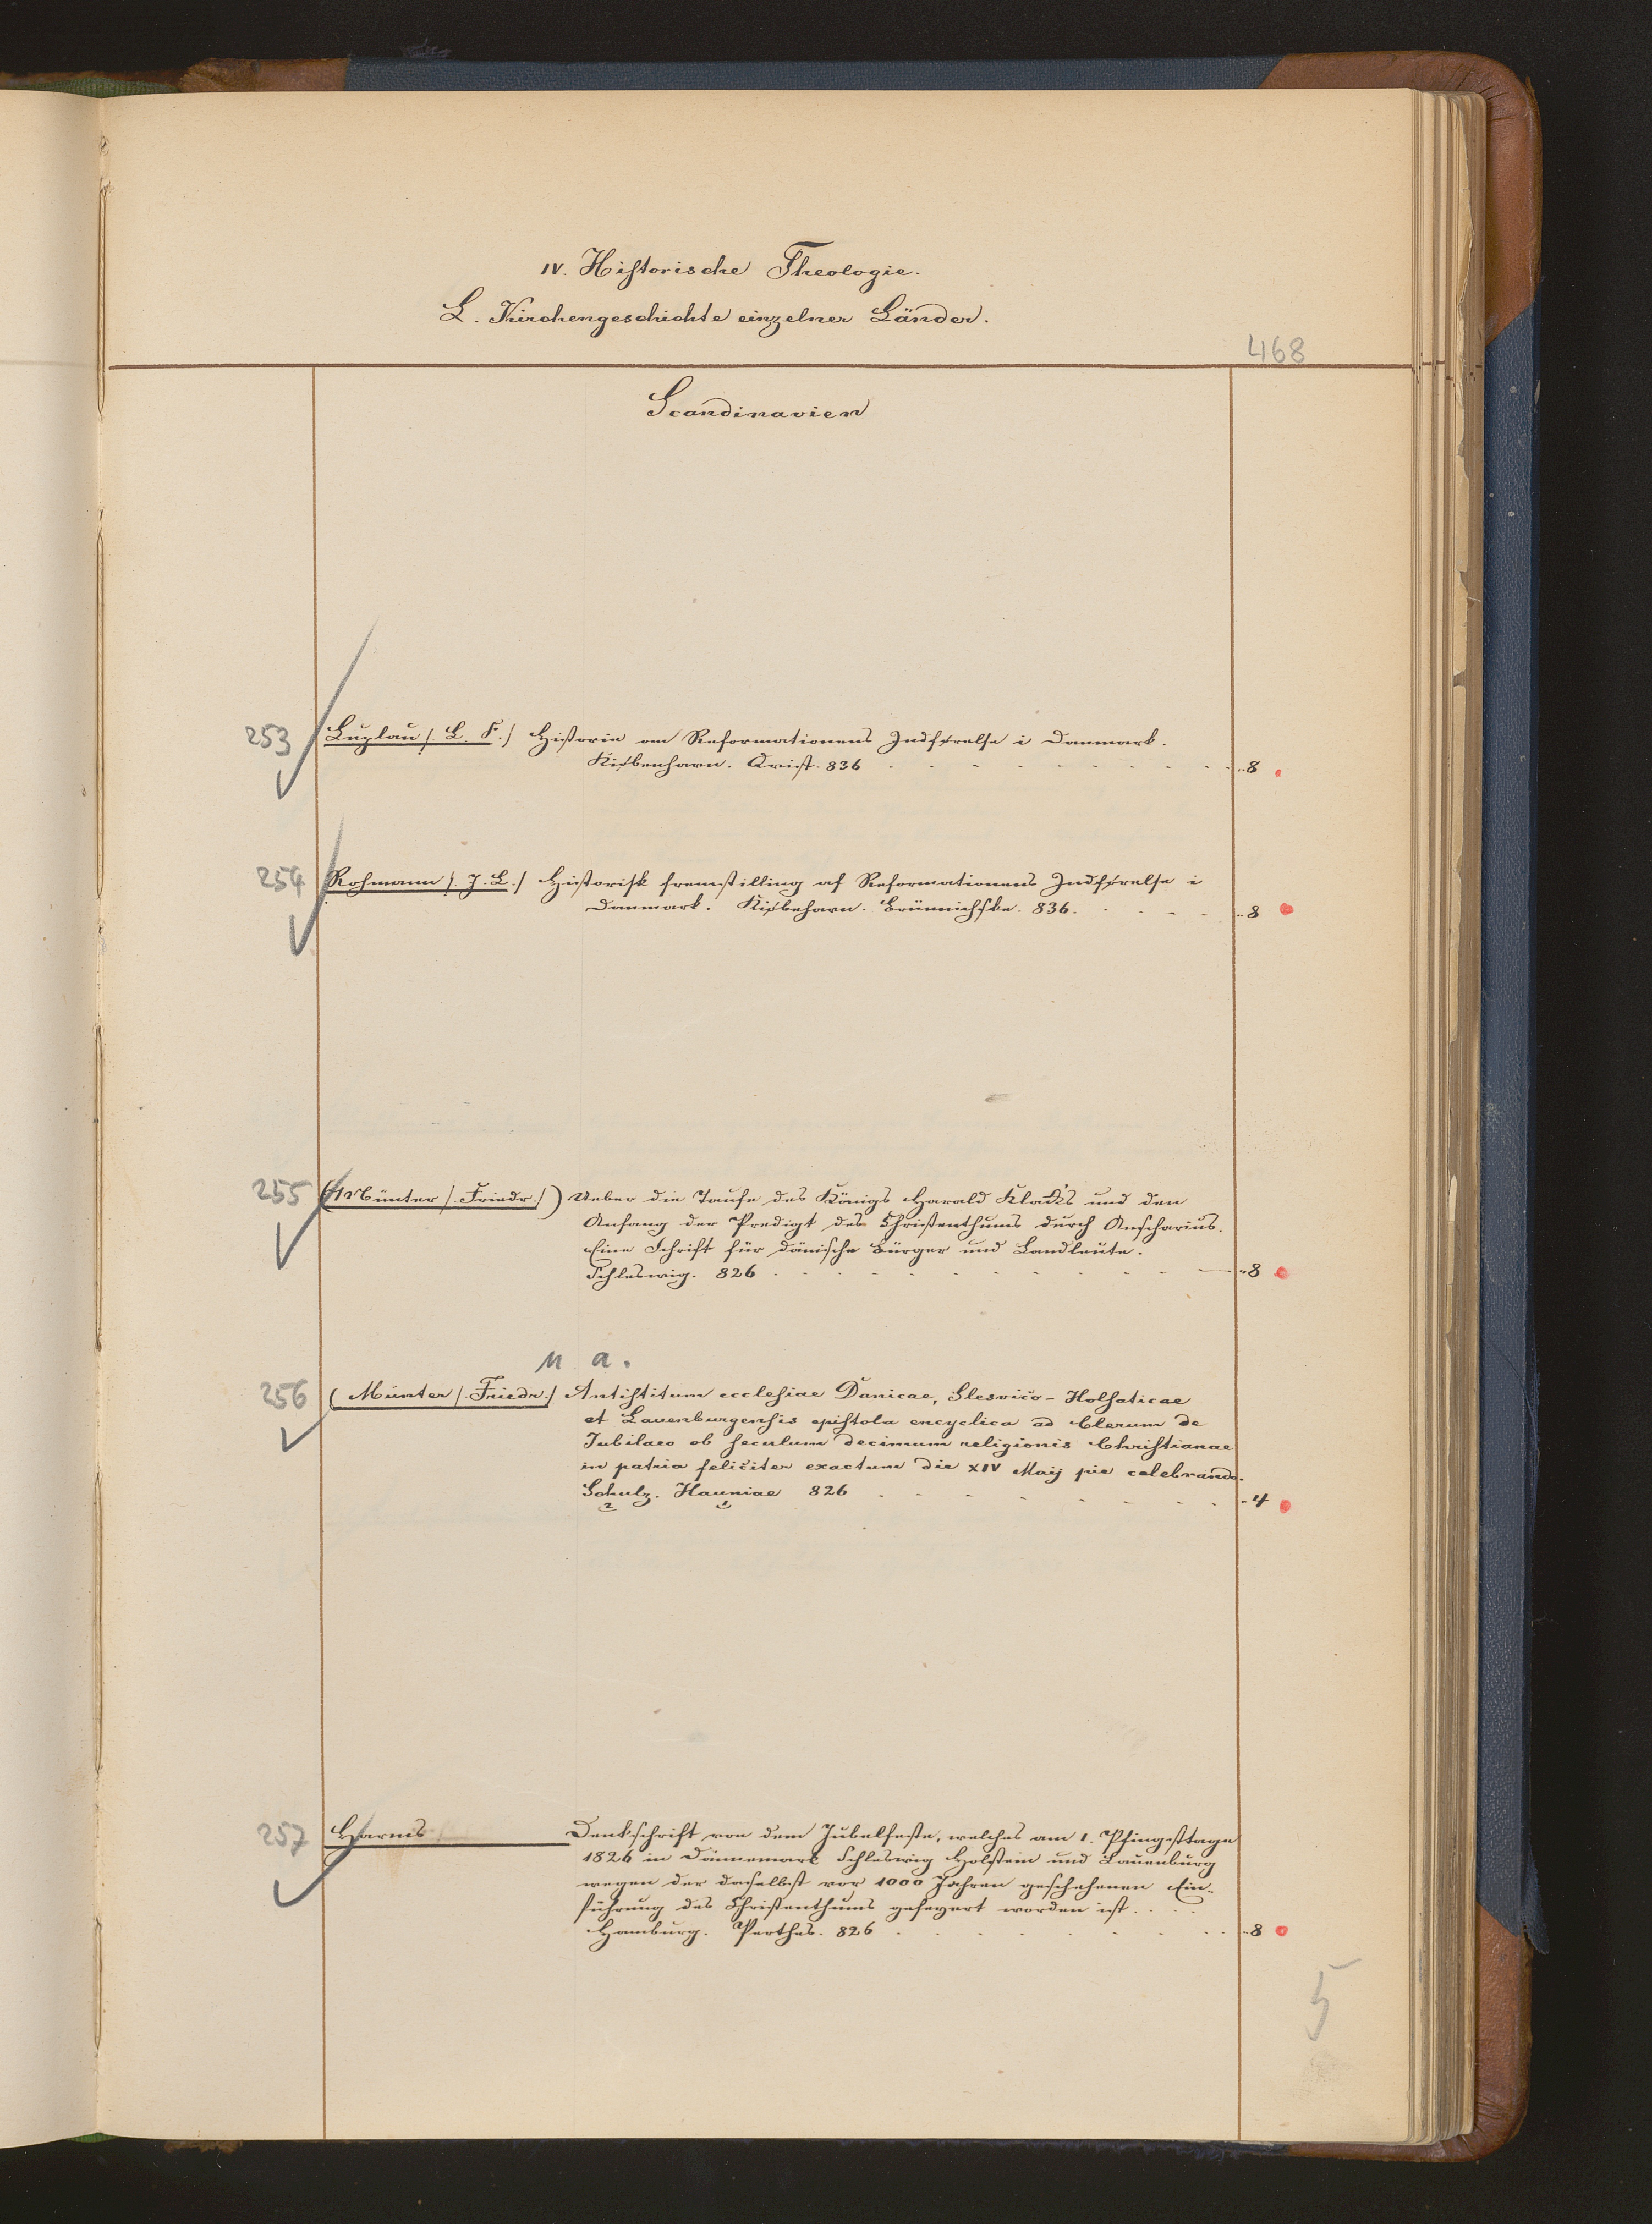 IV. Historische Theologie.
L. Kirchengeschichte einzelner Länder.
468
Scandinavien
253 Luplau /. L. F./ Historie om Reformationens Indførelse i Danmark.
Kiøbenhavn. Qvist. 836 . . . . . . . . . . „8
254 Rohmann /. J. L./ Historisk fremstilling af Reformationens Indførelse i
Danmark. Kiøbehavn. Brünnichske. 836. . . . . . „8
255 (Münter /. Friedr./) Ueber die Taufe des Königs Harald Klak's und den
Anfang der Predigt des Christenthums durch Anscharius.
Eine Schrift für dänische Bürger und Landleute.
Schleswig. 826 . . . . . . . . . . . . „8
M a.
256 (Münter /. Friedr./ Antistitum ecclesiae Danicae, Slesvico-Holsaticae
et Lauenburgensis epistola encyclica ad Clerum de
Jubilaeo ob seculum decimum religionis Christianae
in patria feliciter exactum die XIV Maij pie celebrando.
Schulz. Hauniae 826 . . . . . . . . „4
2 1
257 Harms Denkschrift von dem Jubelfeste, welches am 1. Pfingsttage
1826 in Dännemark Schleswig Holstein und Lauenburg
wegen der daselbst vor 1000 Jahren geschehenen Ein-
führung des Christenthums gefeyert worden ist. . . .
Hamburg. Perthes. 826 . . . . . . . . . „8
5